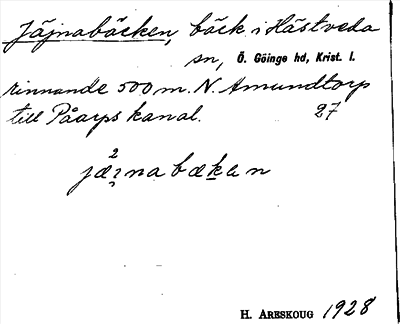 Jäjnabäcken, bäck i Hästveda
sn, Ö. Göinge hd, Krist. l.
rinnande 500 m. N. Amundtorp
till Påarps kanal. 27
H. Areskoug 1928